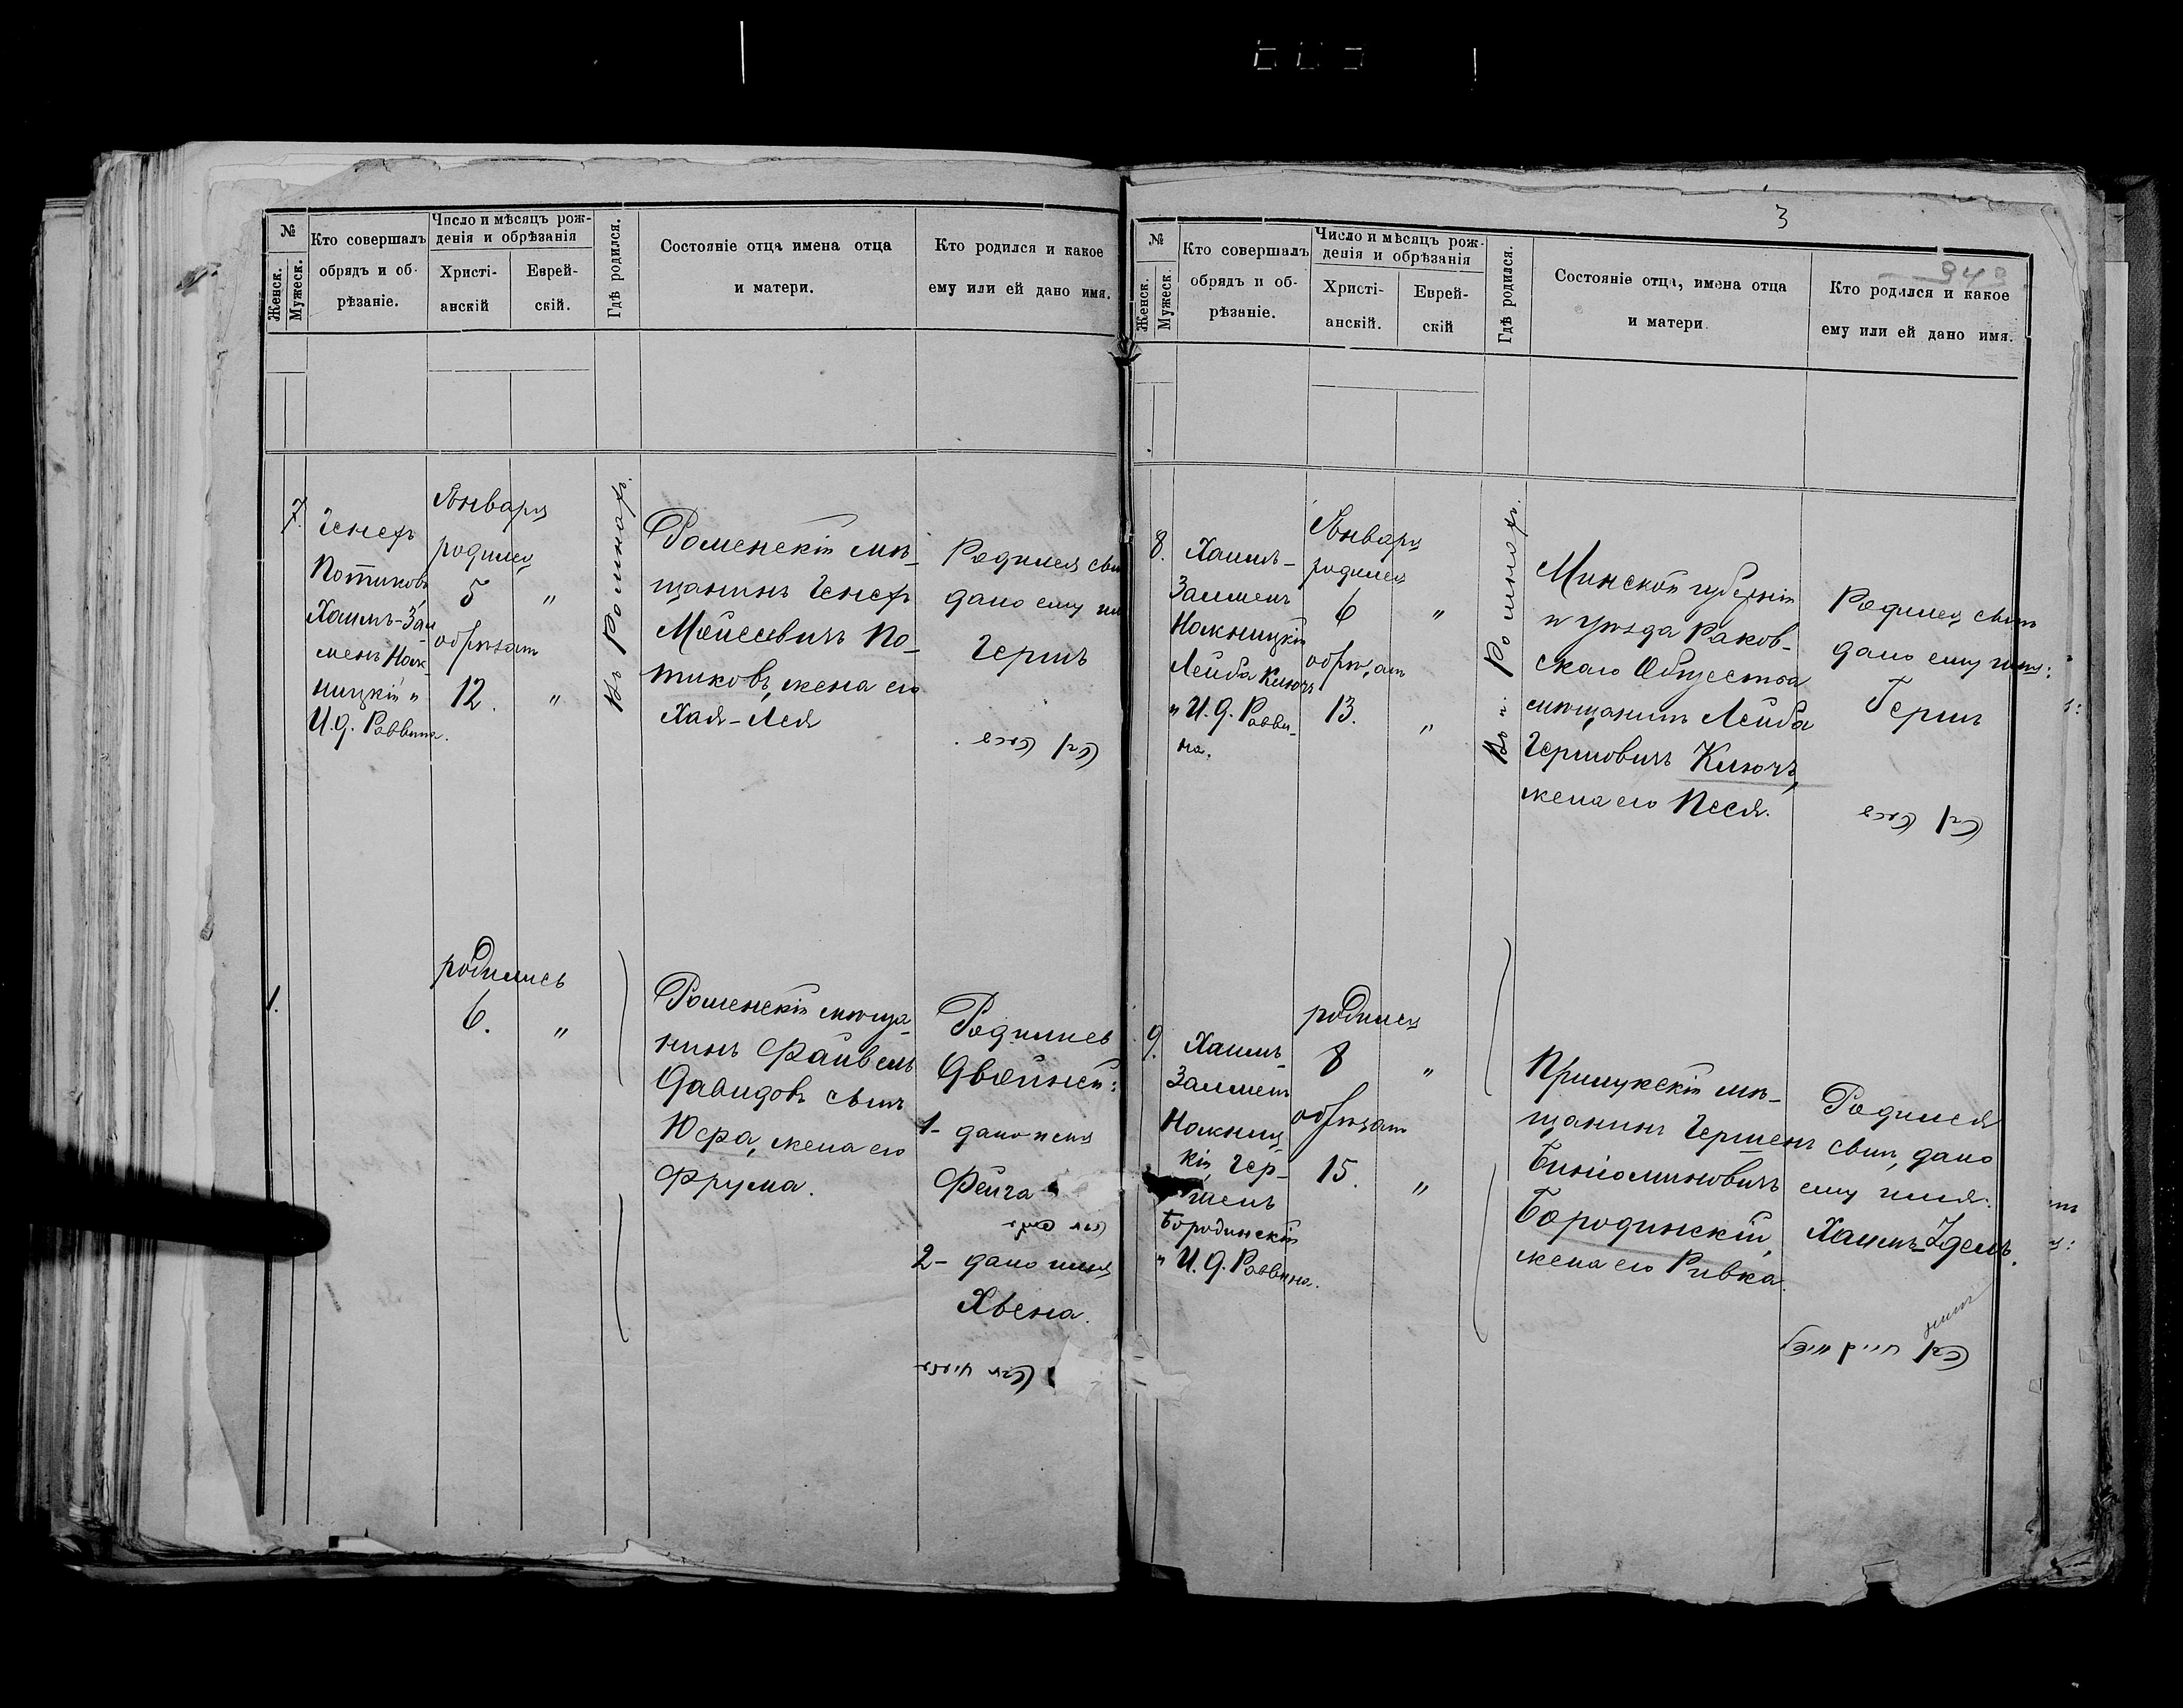 №
Женск.
Мужеск.
Кто совершалъ
обрядъ и об-
рѣзаніе.
Число и мѣсяцъ рож-
денія и обрѣзанія
Христі-
анскій
Еврей-
скій.
Гдѣ родился.
Состояніе отца имена отца
и матери.
Кто родился и какое
ему или ей дано имя.
7.
Іосифъ
Потиковъ,
Хаимъ-Зал
менъ
ницкій "
И.д. Раввина.
Января
родился
5 "
обрѣзанъ
12. "
Въ Ромнахъ.
Роменскій мѣ-
щанинъ Іосифъ
Мойсеевичъ По-
тиковъ, жена его
Хая-Лея
Родился сын
дано ему им
Гершъ
1.
родились
6. "
Роменскій мѣща-
нинъ Файвель
Давидовъ сынъ
Юфа, жена его
Фрума.
Родились
Двойней:
1- дано имя
Фейга
2- дано имя
Хвена.
3
№
Женск.
Мужеск
Кто совершалъ
обрядъ и об-
рѣзаніе.
Число и мѣсяцъ рож-
денія и обрѣзанія
Христі-
анскій.
Еврей-
скій
Гдѣ родился.
Состояніе отца, имена отца
и матери
Кто родился и какое
ему или ей дано имя.
8.
Хаимъ-
Залменъ
Лейба Ключъ
" И.д. Равви-
на.
Января
родился
6 "
обрѣзанъ
13. "
Въ Ромнахъ.
Минской губерніи
и уѣзда Раков-
скаго Общества
мѣщанинъ Лейба
Гершовичъ Ключъ,
жена его Песя.
Родился сынъ
дано ему имя:
Гершъ
9.
Хаимъ
Залменъ
кій, Гер-
шенъ
Бородинскій
" И.д. Раввина.
родился
8 "
обрѣзанъ
15. "
Прилукскій мѣ-
щанинъ Гершенъ
Биніоминовичъ
Бородинскій,
жена его Ривка.
Родился
сынъ, дано
ему имя:
Хаимъ-Идель.